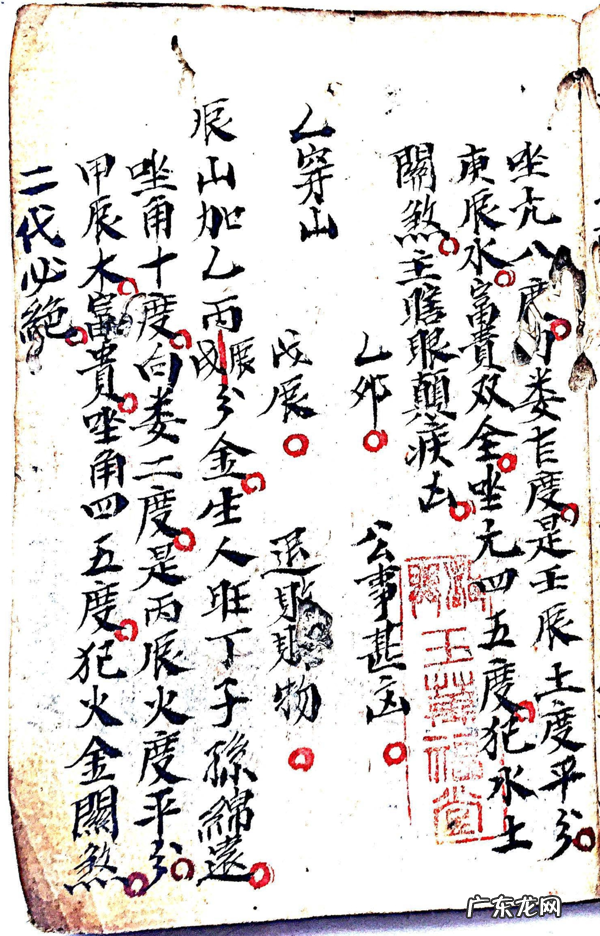 坐亢八度向娄七度是壬辰土度平分
庚辰水富貴双全坐亢四五度犯水土
關煞主瞎眼顛疾凶
乙卯 公事甚凶
乙穿山 戊辰 退財物
辰山加乙丙辰戌分金生人旺丁子孫綿遠
坐角十度向娄二度是丙辰火度平分
甲辰木富貴坐角四五度犯火金關煞
二代必絶
玉華福堂
广东龙网